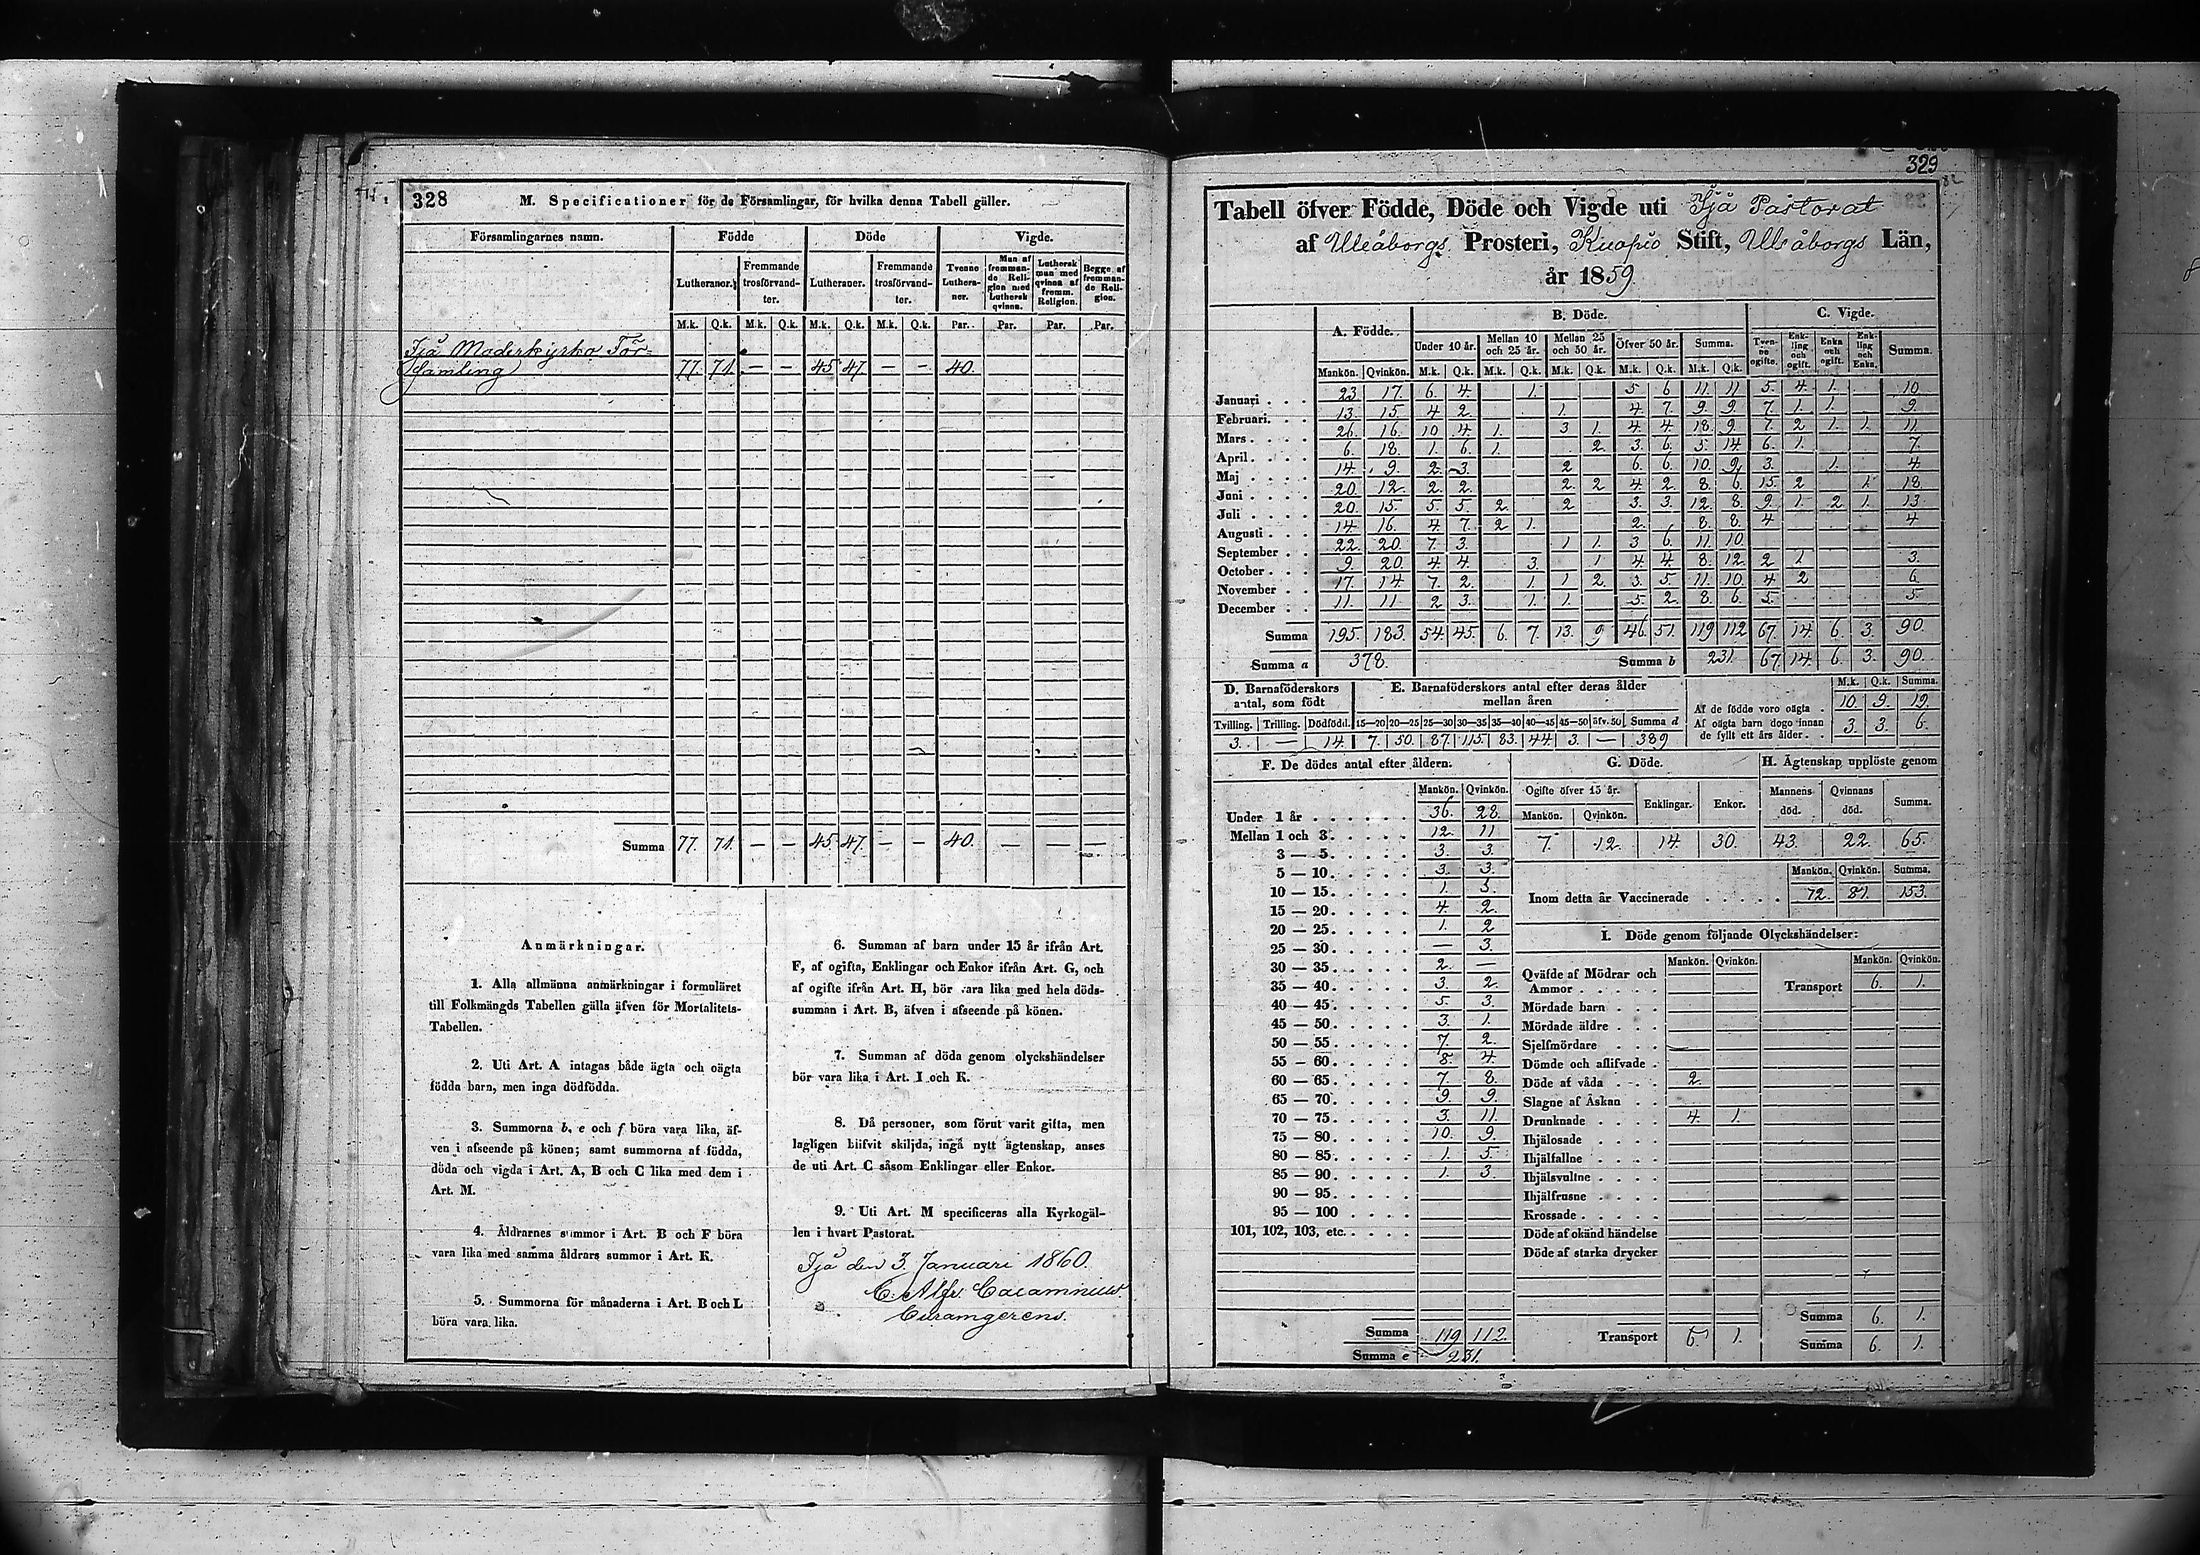 328 M. Specificationer för de Församlingar, för hvilka denna Tabell gäller.
Församlingarnes namn. Födde Döde Vigde.
Lutheraner. Fremmande trosförvandter. Lutheraner. Fremmande trosförvandter. Tvenne Lutheraner. Man af fremmande Religion med Luthersk qvinna. Luthersk man med qvinna af fremm. Religion. Begge af fremmande Religion.
M.k. Q.k. M.k. Q.k. M.k. Q.k. M.k. Q.k. Par. Par. Par. Par.
Ijå Moderkyrko För-
samling 77. 71. — — 45 47. — — 40.
Summa 77. 71. — — 45 47. — — 40. — — —
Anmärkningar.
1. Alla allmänna anmärkningar i formuläret
till Folkmängds Tabellen gälla äfven för Mortalitets-
Tabellen.
2. Uti Art. A intagas både ägta och oägta
födda barn, men inga dödfödda.
3. Summorna b, e och f böra vara lika, äf-
ven i afseende på könen; samt summorna af födda,
döda och vigda i Art. A, B och C lika med dem i
Art. M.
4. Åldrarnes summor i Art. B och F böra
vara lika med samma åldrars summor i Art. K.
5. Summorna för månaderna i Art. B och L
böra vara lika.
6. Summan af barn under 15 år ifrån Art.
F, af ogifta, Enklingar och Enkor ifrån Art. G, och
af ogifte ifrån Art. H, bör vara lika med hela döds-
summan i Art. B, äfven i afseende på könen.
7. Summan af döda genom olyckshändelser
bör vara lika i Art. I och K.
8. Då personer, som förut varit gifta, men
lagligen blifvit skiljda, ingå nytt ägtenskap, anses
de uti Art. C såsom Enklingar eller Enkor.
9. Uti Art. M specificeras alla Kyrkogäl-
len i hvart Pastorat.
Ijå den 3. Januari 1860.
C. Alfr. Cacamnius.
Curamgerens.
329
Tabell öfver Födde, Döde och Vigde uti Ijå Pastorat
af Uleåborgs Prosteri, Kuopio Stift, Uleåborgs Län,
år 1859.
A. Födde. B. Döde. C. Vigde.
Under 10 år. Mellan 10 och 25 år. Mellan 25 och 50 år. Öfver 50 år. Summa. Tvenne ogifte. Enkling och ogift. Enka och ogift. Enkling och Enka. Summa.
Mankön. Qvinkön. M.k. Q.k. M.k. Q.k. M.k. Q.k. M.k. Q.k. M.k. Q.k.
Januari 23 17. 6. 4. 1. 5 6 11. 11 5. 4. 1. 10
Februari. 13. 15. 4 2. 1. 4. 7. 9. 9. 7. 1. 1. 9.
Mars 26. 16. 10 4. 1. 3 1. 4. 4. 18. 9. 7. 2 1. 1. 11.
April. 6. 18. 1. 6. 1. 2. 3. 6. 5. 14. 6. 1. 7.
Maj 14. 9. 2. 3. 2 6. 6. 10. 9. 3. 1. 4
Juni 20. 12. 2. 2. 2. 2 4. 2. 8. 6. 15. 2 1. 18.
Juli 20. 15. 5. 5. 2. 2 3. 3. 12. 8. 9. 1. 2. 1. 13.
Augusti 14. 16. 4. 7. 2 1. 2. 8. 8. 4 4
September 22. 20. 7. 3. 1 1. 3 6. 11. 10
October 9. 20. 4. 4 3. 1 4. 4. 8. 12. 2 1 3.
November 17. 14 7. 2. 1. 1 2. 3. 5. 11. 10. 4 2 6.
December 11. 11 2 3. 1. 1. 5. 2. 8. 6. 5. 5
Summa 195. 183. 54. 45. 6. 7. 13. 9 46. 51. 119 112 67. 14. 6. 3. 90.
Summa a 378. Summa b 231. 67. 14. 6. 3. 90.
D. Barnaföderskors antal, som födt
Tvilling. Trilling. Dödfödd.
3. — 14.
E. Barnaföderskors antal efter deras ålder mellan åren
15—20 20—25 25—30 30—35 35—40 40—45 45—50 öfv. 50 Summa d
7. 50. 87. 115. 83. 44. 3. — 389
M.k. Q.k. Summa.
Af de födde voro oägta 10. 9. 19.
Af oägta barn dogo innan de fyllt ett års ålder. 3. 3. 6.
F. De dödes antal efter åldern.
Mankön. Qvinkön.
Under 1 år 36. 28.
Mellan 1 och 3. 12. 11
3 — 5. 3. 3.
5 — 10. 3. 3.
10 — 15. 1. 3.
15 — 20. 4. 2.
20 — 25. 1. 2
25 — 30. — 3.
30 — 35. 2. —
35 — 40. 3. 2.
40 — 45. 5. 3.
45 — 50. 3. 1.
50 — 55. 7. 2.
55 - 60. 8. 4.
60 — 65. 7. 8.
65 — 70. 9. 9.
70 — 75. 3. 11.
75 — 80. 10. 9.
80 — 85. 1. 5.
85 — 90. 1. 3.
90 — 95.
95 — 100
101, 102, 103, etc.
Summa 119 112.
Summa e 231.
G. Döde.
Ogifte öfver 15 år. Enklingar. Enkor.
Mankön. Qvinkön.
7. 12. 14 30.
H. Ägtenskap upplöste genom
Mannens död. Qvinnans död. Summa.
43. 22. 65.
Mankön. Qvinkön. Summa.
Inom detta år Vaccinerade 72. 81. 153.
I. Döde genom följande Olyckshändelser:
Mankön. Qvinkön. Mankön. Qvinkön.
Qväfde af Mödrar och Ammor
Transport 6. 1.
Mördade barn
Mördade äldre
Sjelfmördare
Dömde och aflifvade
Döde af våda 2.
Slagne af Åskan
Drunknade 4. 1.
Ihjälosade
Ihjälfallne
Ihjälsvultne
Ihjälfrusne
Krossade
Döde af okänd händelse
Döde af starka drycker
Summa 6. 1.
Transport 6. 1.
Summa 6. 1.